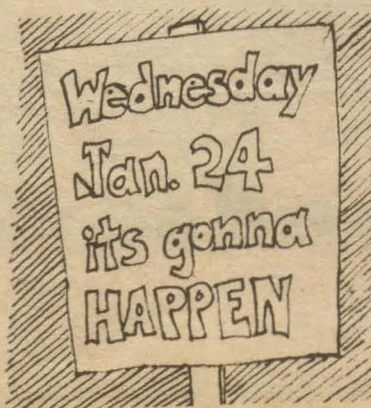 Wednesday
Jan. 24
its gonna
HAPPEN